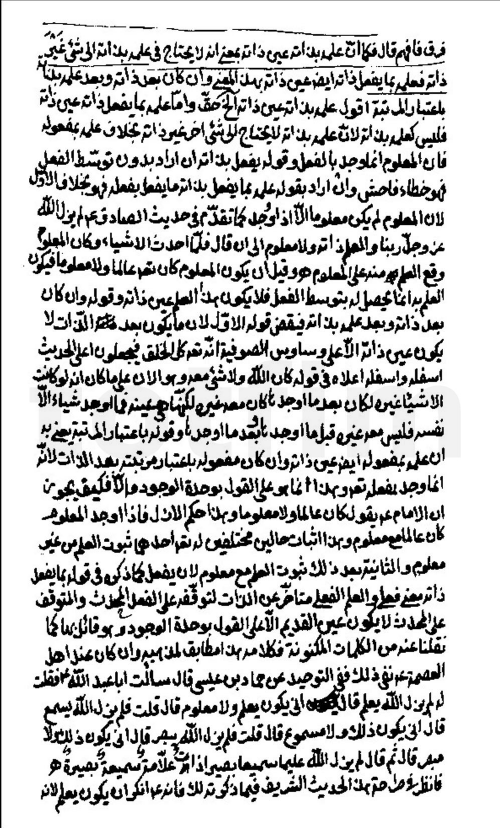 فرق فافهم قال فكما ان علمه بذاته عين ذاته بمعنى انه لا يحتاج فى علمه بذاته الى شئ غير
ذاته فعلمه بما يفعل ذاته ايضا عين ذاته بهذا المعنى وان كان بعد ذاته وبعد علمه بذاته
باعتبار المرتبة اقول علمه بذاته عين ذاته الحق حقّ واما علمه بما يفعل ذاته عين ذاته
فليس كعلمه بذاته لان علمه بذاته لا يحتاج الى شئ اخر غير ذاته بخلاف علمه بمفعوله
فان المعلوم انما وجد بالفعل وقوله يفعل بذاته ان اراد بدون توسّط الفعل
فهو خطاء فاحش وان اراد بقوله علمه بما يفعل بذاته ما يفعل بفعله فهو بخلاف الاوّل
لان المعلوم لم يكن معلوما الا اذا وُجد كما تقدّم فى حديث الصادق ع لم يزل اللّه
عز وجلّ ربنا والعلم ذاته ولا معلوم الى ان قال فلمّا احدث الاشياء وكان المعلوم
وقع العلم منه على المعلوم هو وقيل ان يكون المعلوم كان تعه عالما ولا معلوما فيكون
العلم به انما يحصل له بتوسط الفعل فلا يكون هذا العلم عين ذاته وقوله وان كان
بعد ذاته وبعد علمه بذاته فينقض قوله الاوّل لان ما يكون بعد الذات لا
يكون عين ذاته الا على وساوس الصوفية انه تعه كل الخلق فيجعلون اعلى الحديث
اسفله واسفله اعلاه فى قوله كان اللّه ولا شئ معه وهو الان على ما كان انه لو كانت
الاشياء غيره لكان بعد ما اوجدها كان معه غيره لكنها هى عينه فما اوجد شيئا الّا
نفسه فليس معه غيره قبل ما اوجد ولا بعد ما اوجد وقوله باعتبار المرتبة يعنى به
ان علمه بمفعوله ايضا عين ذاته وان كان مفعوله باعتبار مرتبته بعد الذات لانّه
انما وجد بفعله تعه وهذا انما هو على القول بوحدة الوجود والّا فكيف يجوز
ان الامام ع يقول كان عالما ولا معلوما وهذا حكم الازل فاذا اوجد المعلوم
كان عالما مع معلوم وهذا اثبات حالين مختلفين له تعه احدهما ثبوت العلم من غير
معلوم والثانية بعد ذلك ثبوت العلم مع معلوم لان يفعل كما ذكره فى قوله بما يفعل
ذاته بمعنى فعلى والعلم الفعلى متأخّر عن الذات لتوقّفه على الفعل المحدث والمتوقف
على المحدث لا يكون عين القديم الّا على القول بوحدة الوجود وهو قائل بها كما
نقلنا عنه من الكلمات المكنونة فكلامه هذا مطابق لمذهبه وان كان عند اهل
العصمة ع نفى ذلك ففى التوحيد عن حماد بن عيسى قال سألت ابا عبد اللّه ع فقلت
له لم يزل اللّه يعلم قال انى يكون يعلم ولا معلوم قال قلت فلم يزل اللّه يسمع
قال انى يكون ذلك ولا مسموع قال قلت فلم يزل اللّه يبصر قال انى يكون ذلك ولا
مبصر قال ثم قال لم يزل اللّه عليما سميعا بصيرا ذات علّامة سميعة بصيرة هـ
فانظر صراحة هذا الحديث الشريف فيما ذكرته لك فانه ع انكر ان يكون يعلم لانه